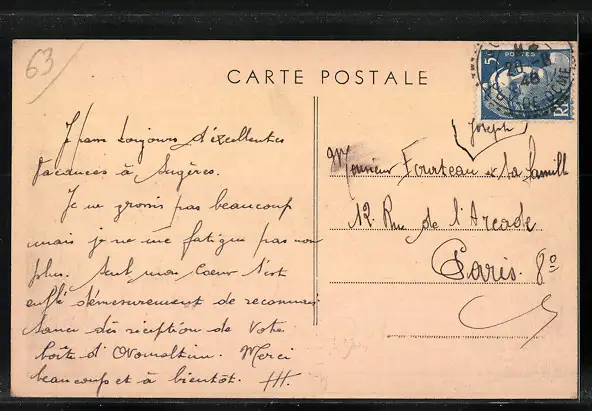 63
CARTE POSTALE
5F
POSTES
RF
20 -8
48
PUY-DE-DOME
Je passe toujours d'excellentes
vacances à Augères.
Je ne grossis pas beaucoup
mais je ne me fatigue pas non
plus. Seul mon Coeur s'est
enflé démesurément de reconnais
sance dès réception de Votre
boîte d'Ovomaltine. Merci
beaucoup et à bientôt.
Joseph
Monsieur Fourteau et sa famille
12 Rue de l'Arcade
Paris. 8º